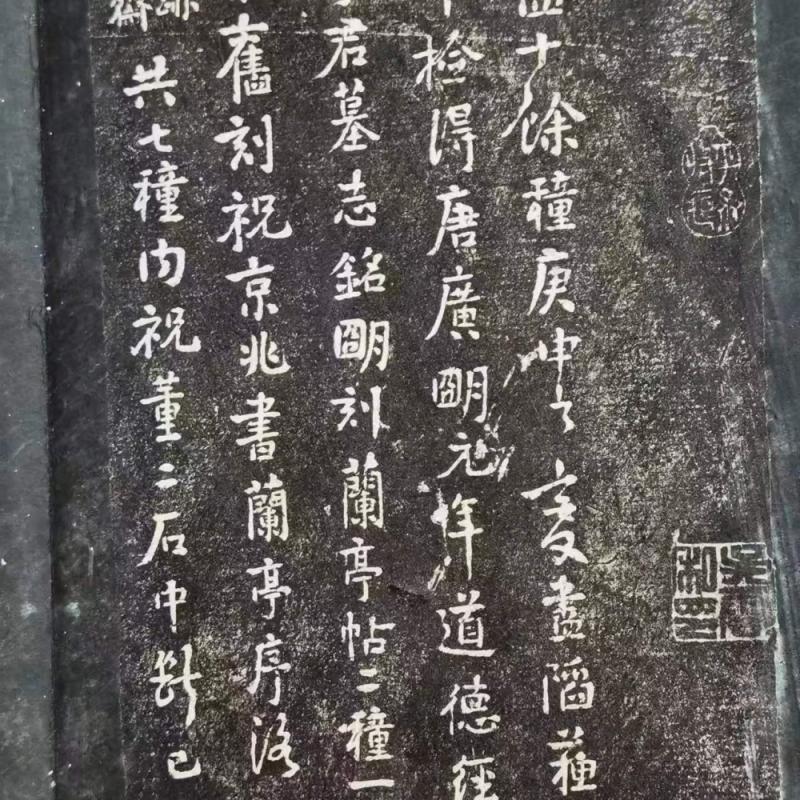 十餘種庚申之變盡陷蘓
檢得唐廣明元年道德經
君墓志銘明刻蘭亭帖二種一
舊刻祝京兆書蘭亭序洛
共七種內祝董二石中斷已